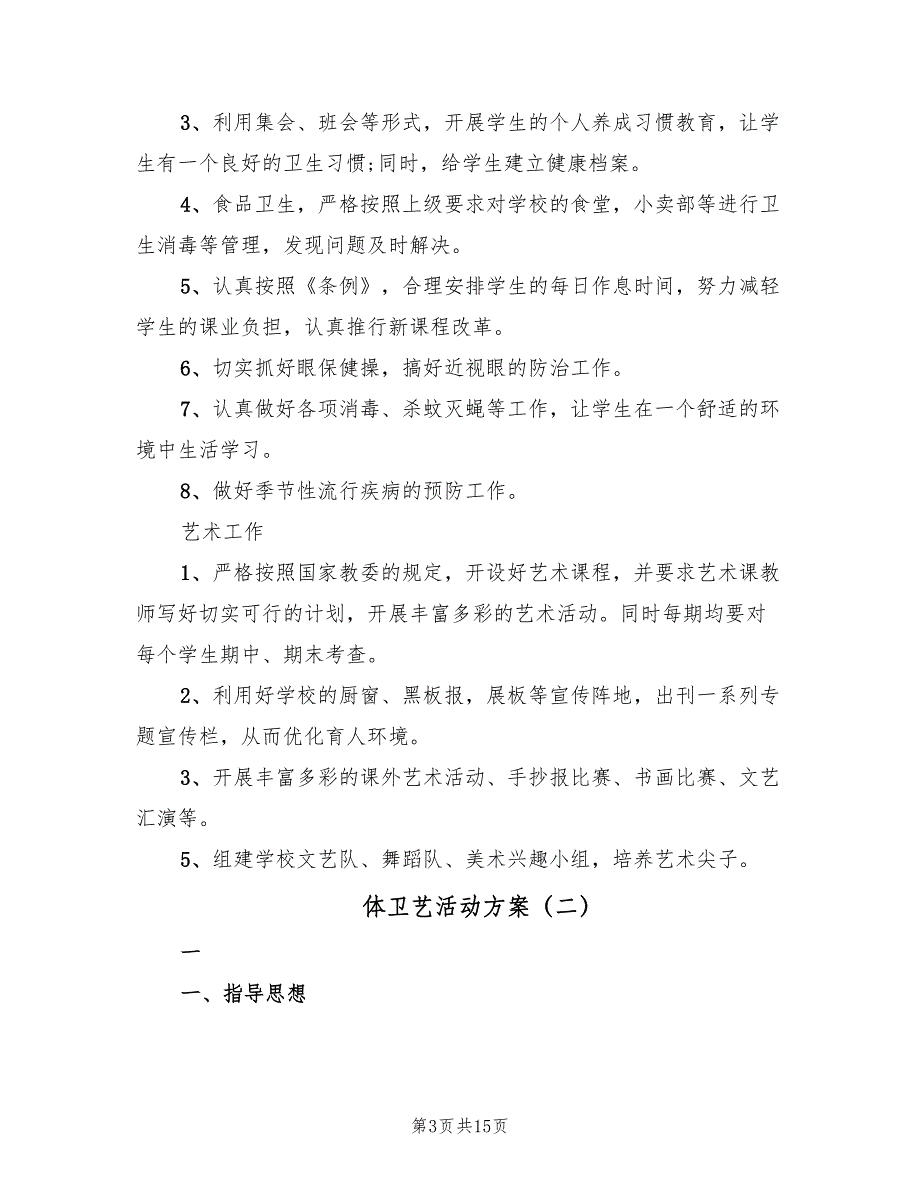 3、利用集会、班会等形式，开展学生的个人养成习惯教育，让学
生有一个良好的卫生习惯;同时，给学生建立健康档案。
4、食品卫生，严格按照上级要求对学校的食堂，小卖部等进行卫
生消毒等管理，发现问题及时解决。
5、认真按照《条例》，合理安排学生的每日作息时间，努力减轻
学生的课业负担，认真推行新课程改革。
6、切实抓好眼保健操，搞好近视眼的防治工作。
7、认真做好各项消毒、杀蚊灭蝇等工作，让学生在一个舒适的环
境中生活学习。
8、做好季节性流行疾病的预防工作。
艺术工作
1、严格按照国家教委的规定，开设好艺术课程，并要求艺术课教
师写好切实可行的计划，开展丰富多彩的艺术活动。同时每期均要对
每个学生期中、期末考查。
2、利用好学校的厨窗、黑板报，展板等宣传阵地，出刊一系列专
题宣传栏，从而优化育人环境。
3、开展丰富多彩的课外艺术活动、手抄报比赛、书画比赛、文艺
汇演等。
5、组建学校文艺队、舞蹈队、美术兴趣小组，培养艺术尖子。
体卫艺活动方案（二）
一
一、指导思想
第3页共15页